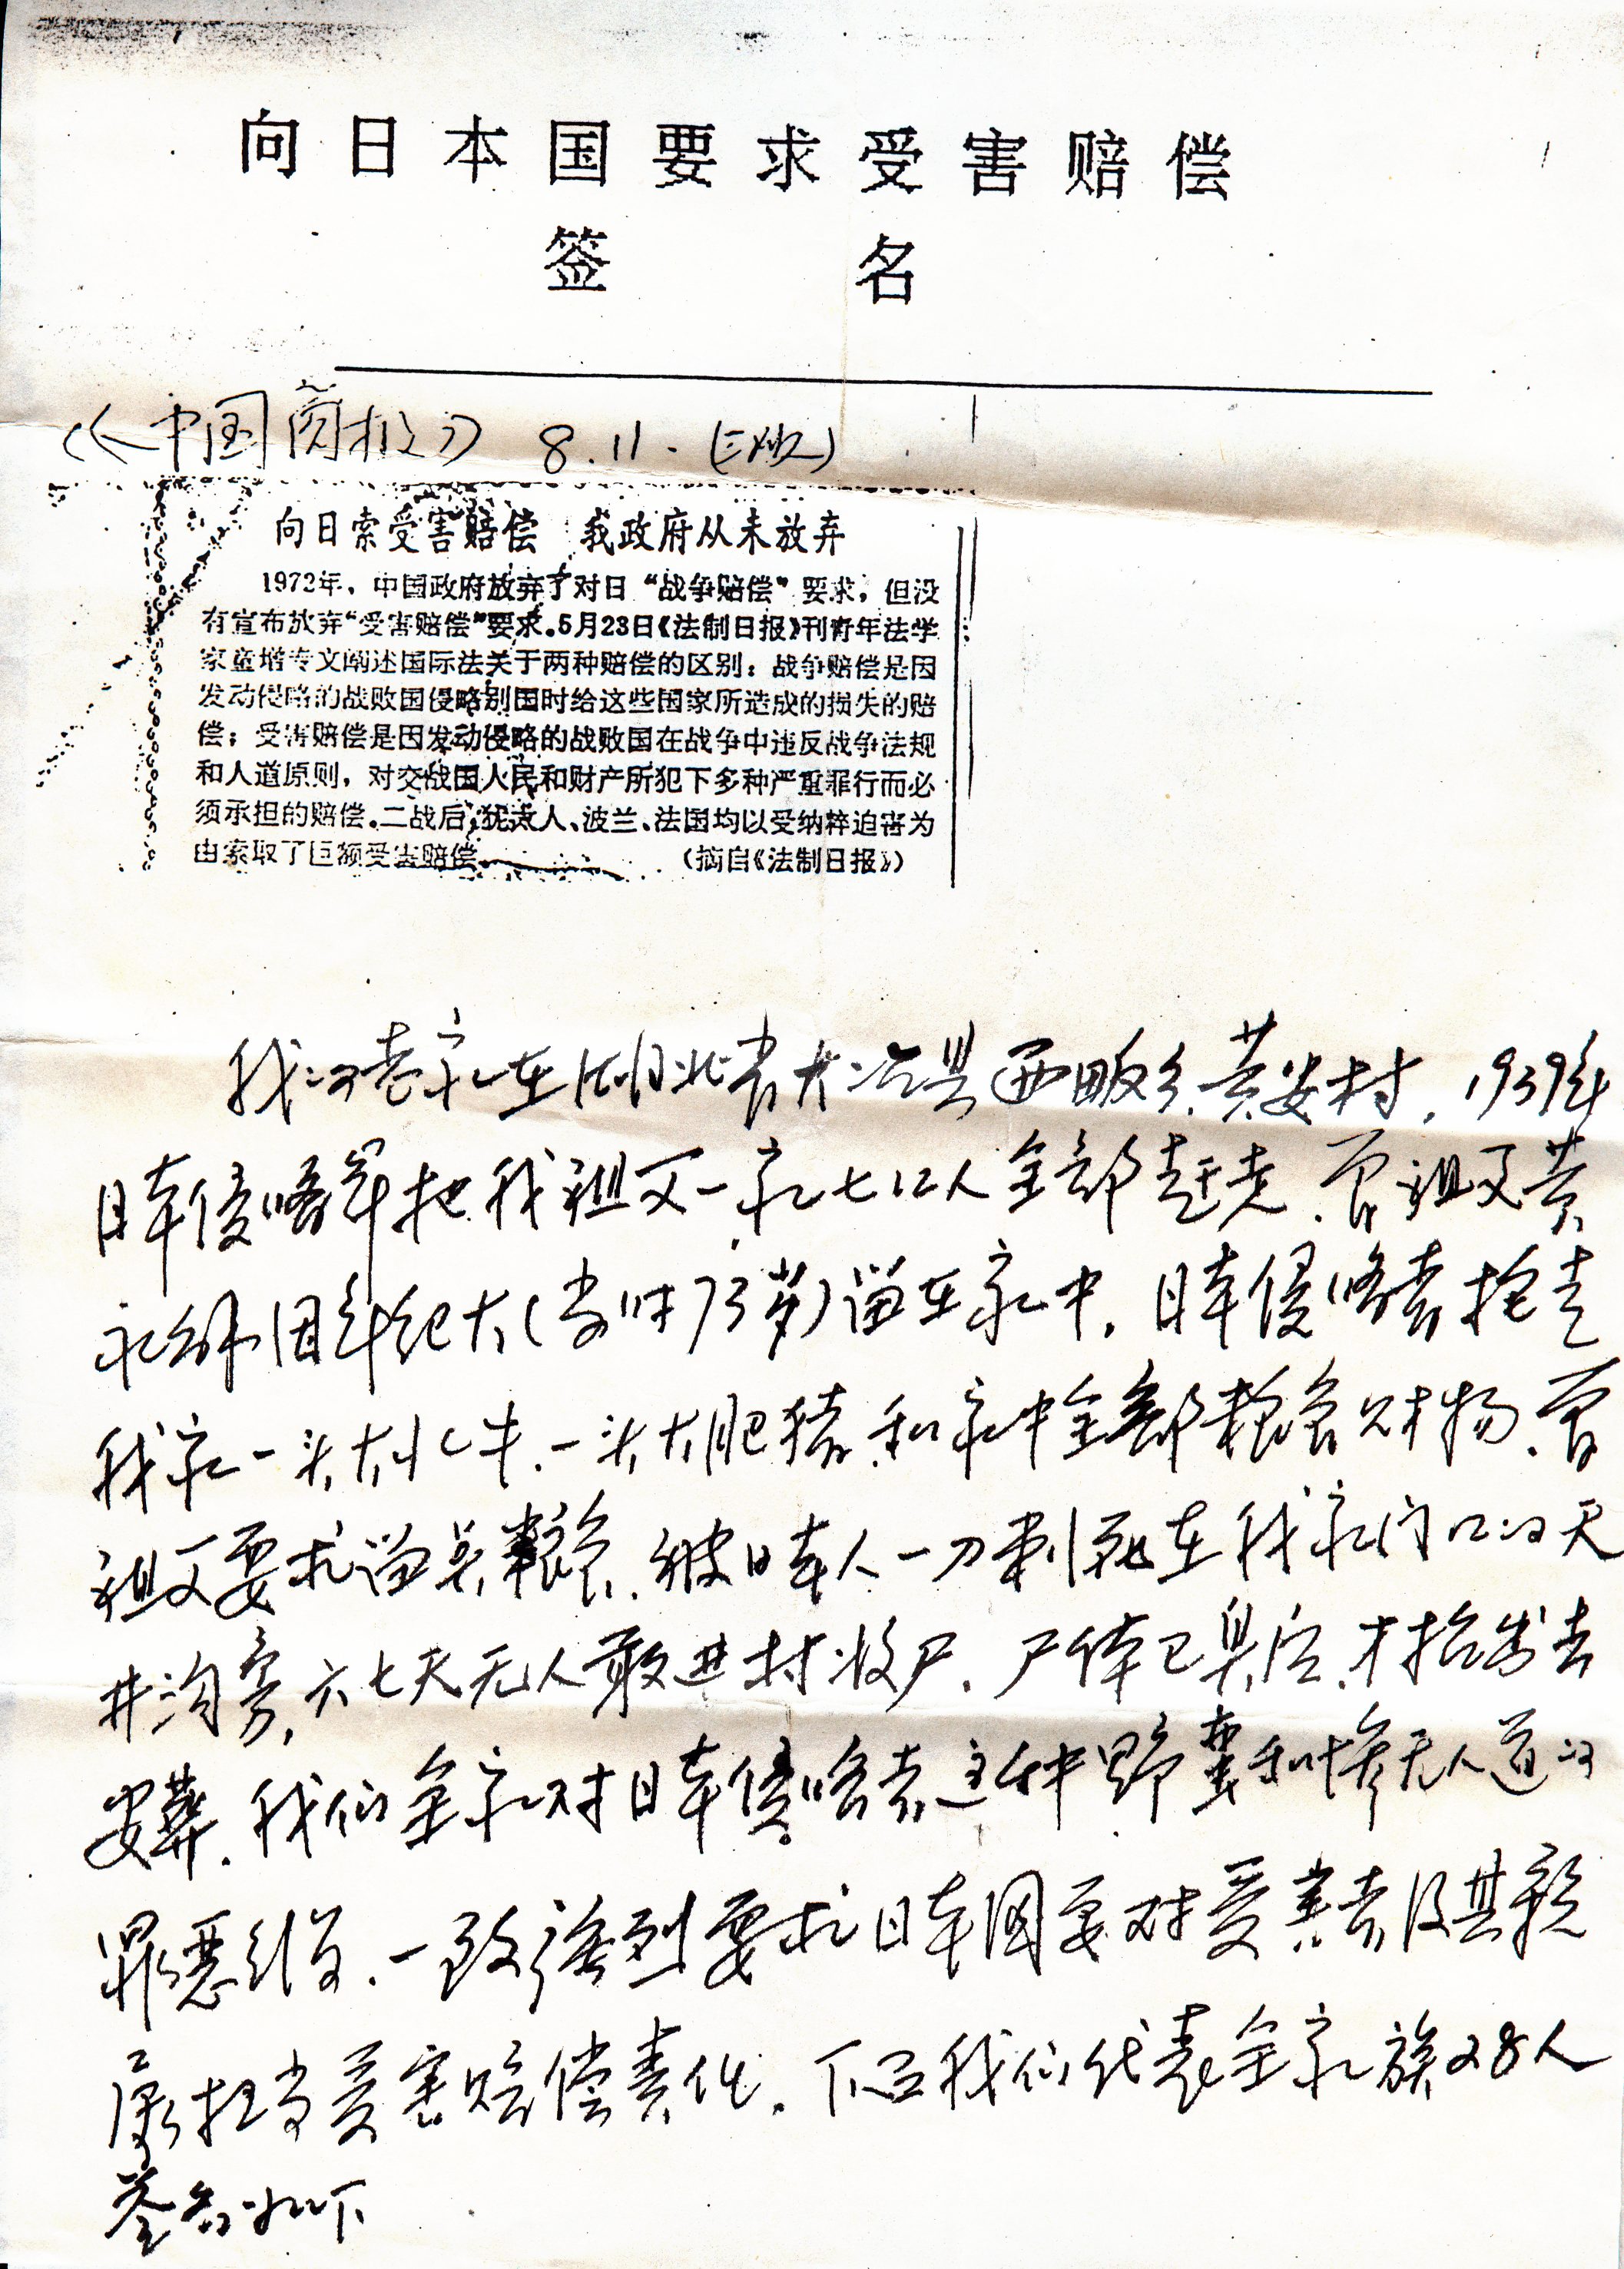 向日本国要求受害赔偿
签 名
《中国商报》 8.11.(三版)
向日索受害赔偿 我政府从未放弃
1972年，中国政府放弃了对日“战争赔偿”要求，但没
有宣布放弃“受害赔偿”要求。5月23日《法制日报》刊青年法学
家童增专文阐述国际法关于两种赔偿的区别：战争赔偿是因
发动侵略的战败国侵略别国时给这些国家所造成的损失的赔
偿；受害赔偿是因发动侵略的战败国在战争中违反战争法规
和人道原则，对交战国人民和财产所犯下多种严重罪行而必
须承担的赔偿。二战后，犹太人、波兰、法国均以受纳粹迫害为
由索取了巨额受害赔偿 （摘自《法制日报》）
我的老家在湖北省大冶县西畈乡黄安村，1939年
日本侵略军把我祖父一家七口人全部赶走，曾祖父黄
永 因年纪大（当时73岁）留在家中，日本侵略者抢走
我家一头大牛、一头大肥猪和家中全部粮食财物，曾
祖父要求留点粮食，被日本人一刀刺死在我家门口的天
井沟旁，六七天无人敢进村收尸，尸体已臭后，才抬出去
安葬。我们全家对日本侵略者这种野蛮和惨无人道的
罪恶行为，一致强烈要求日本国要对受害者及其亲
属担当受害赔偿责任。下面我们代表全家族28人
签名如下